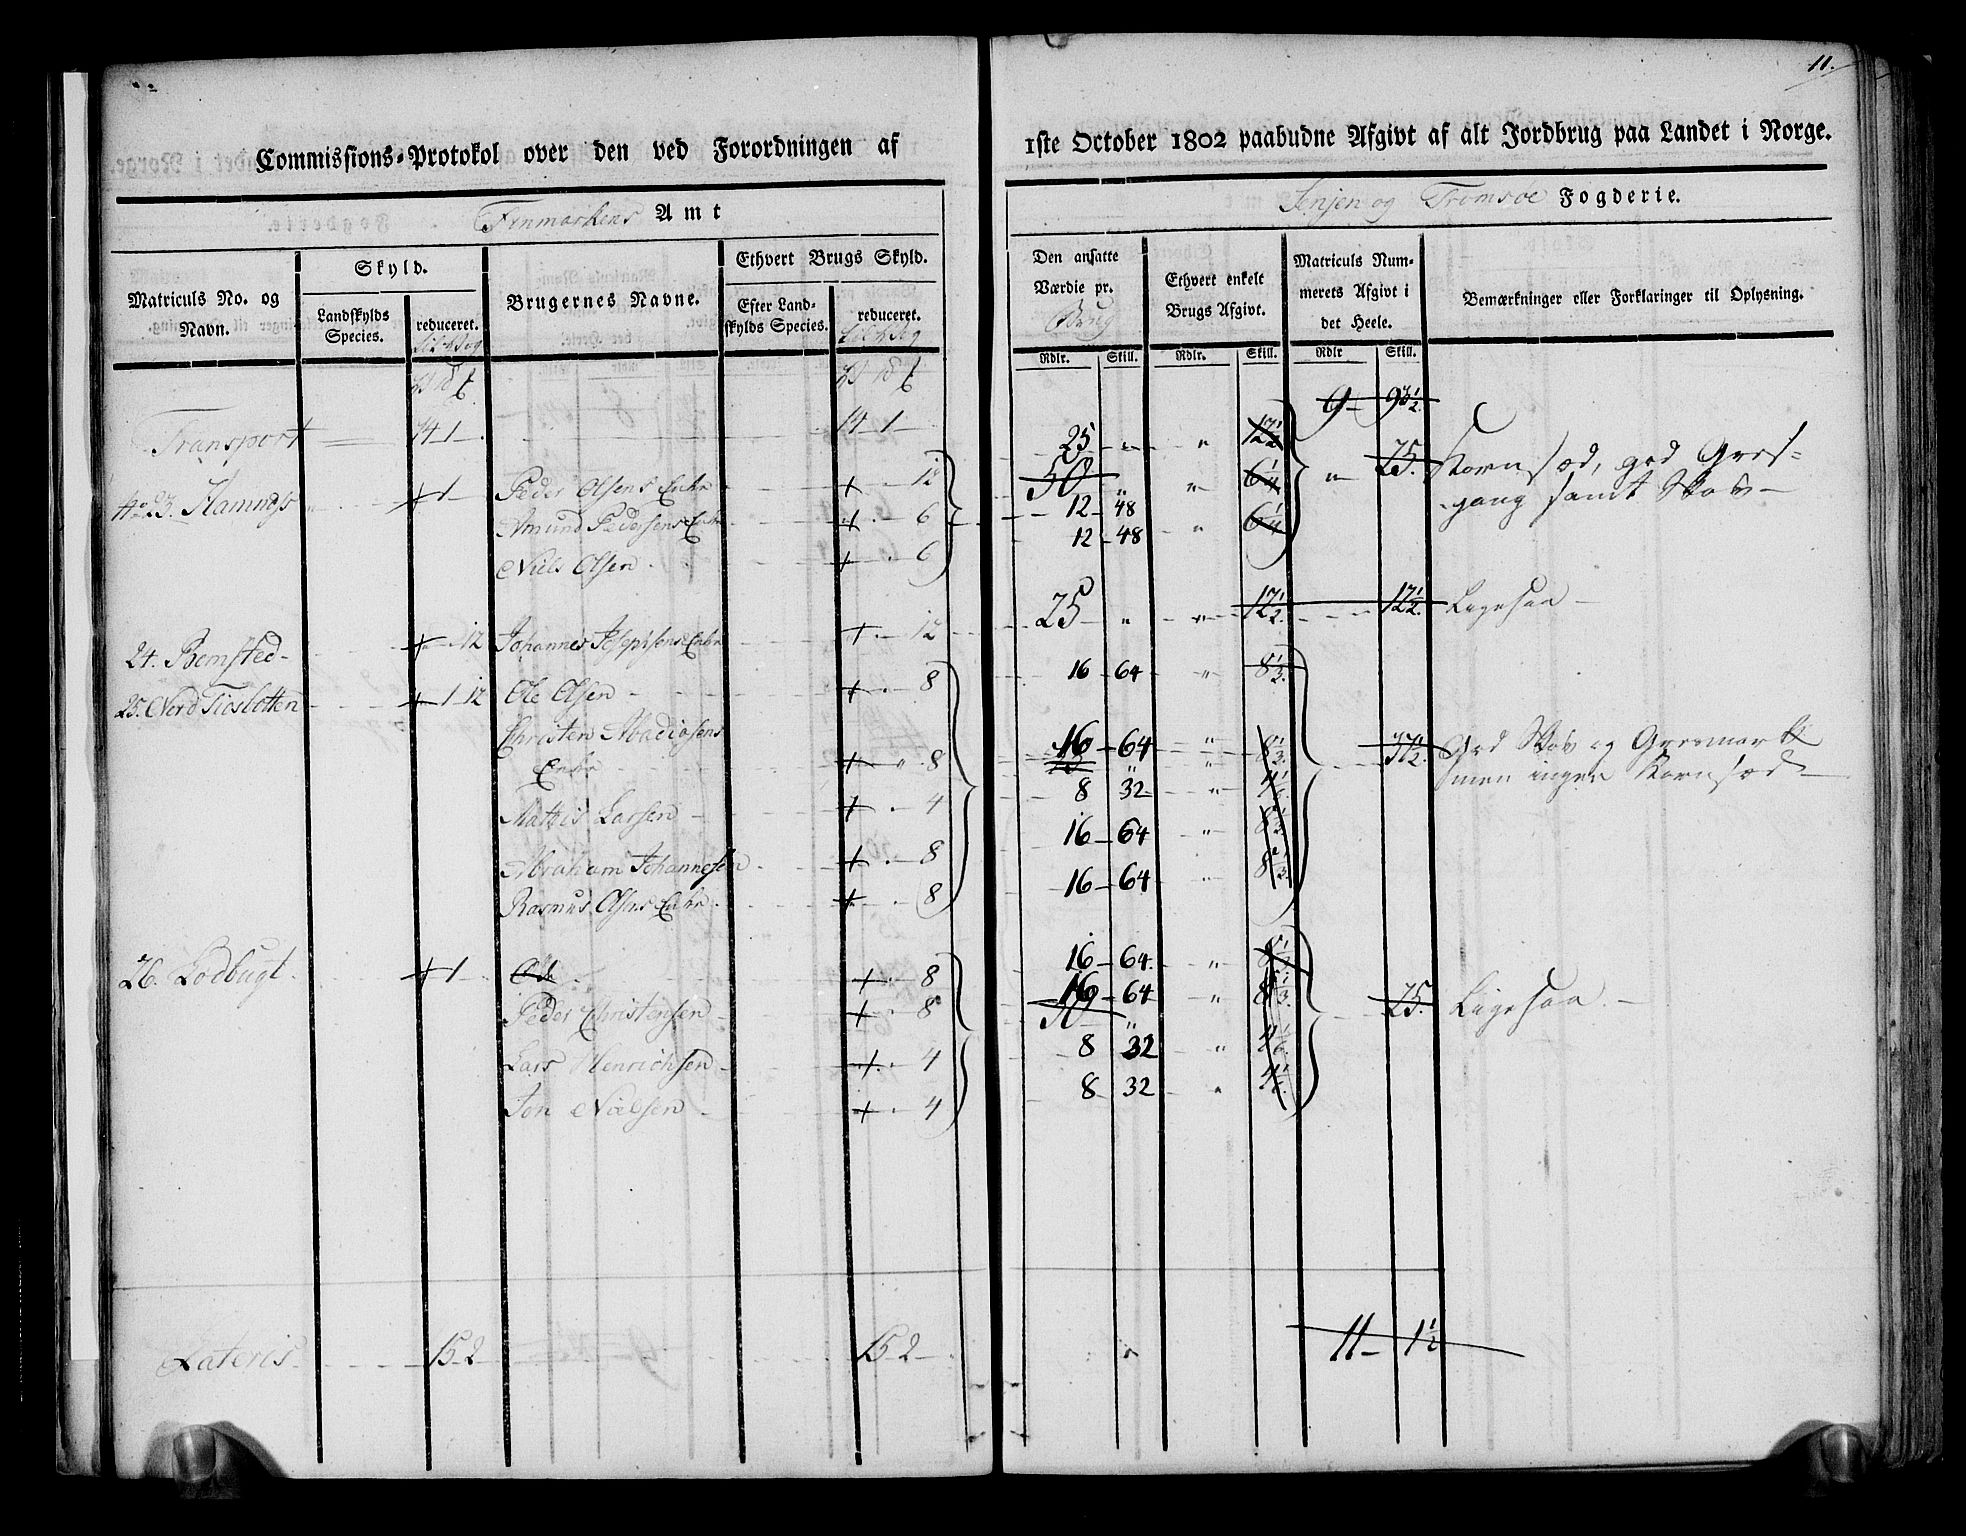 11.
Commissions-Protokol over den ved Forordningen af 1ste October 1802 paabudne Afgivt af alt Jordbrug paa Landet i Norge.
Finmarkens Amt
Senjen og Tromsoe Fogderie.
Matriculs No. og Navn.
Skyld.
Landskylds Species.
reduceret.
Brugernes Navne.
Ethvert Brugs Skyld.
Efter Landskylds Species.
reduceret.
Den ansatte Værdie pr. Brug
Ethvert enkelt Brugs Afgivt.
Matriculs Nummerets Afgivt i det Heele.
Bemærkninger eller Forklaringer til Oplysning.
Rdlr. Skill. Rdlr. Skill. Rdlr Skill.
9 - 93½
Transport 14 1 14 1
No 23. Hamnes + 1 Peder Olsens Enke + 12 25 " " 12½ " 25. Kornsæd, god Gres-
50 " " 6¼ gang samt Skov
Amund Pedersens Enke + 6 12 - 48
Niels Olsen + 6 12 - 48 " 6¼
24. Bemsted + 12 Johannes Josephsens Enke + 12 25 " " 12½ 12½. Ligesaa
25. Nord Fioslotten + 1 12 Ole Olsen + 8 16 64 " 8⅓
Christen Madiosens
Enke + 8 16 - 64 " 8⅓ 37½ God Skov og Gresmark
75 " men ingen Kornsæd
Mattis Larsen + 4 8 32 " 4⅙
Abraham Johannesen + 8 16 - 64 " 8⅓
Rasmus Olsens Enke + 8 16 - 64 " 8⅓
26. Lodbugt + 1 Öde + 8 16 - 64 " 8⅓
Peder Christensen + 8 16 - 64 " 8⅓ 25. Ligesaa
50 "
Lars Henrichsen + 4 8 32 " 4⅙
Jon Nielsen + 4 8 32 " 4⅙
Lateris 15 2 15 2 11 - 1½